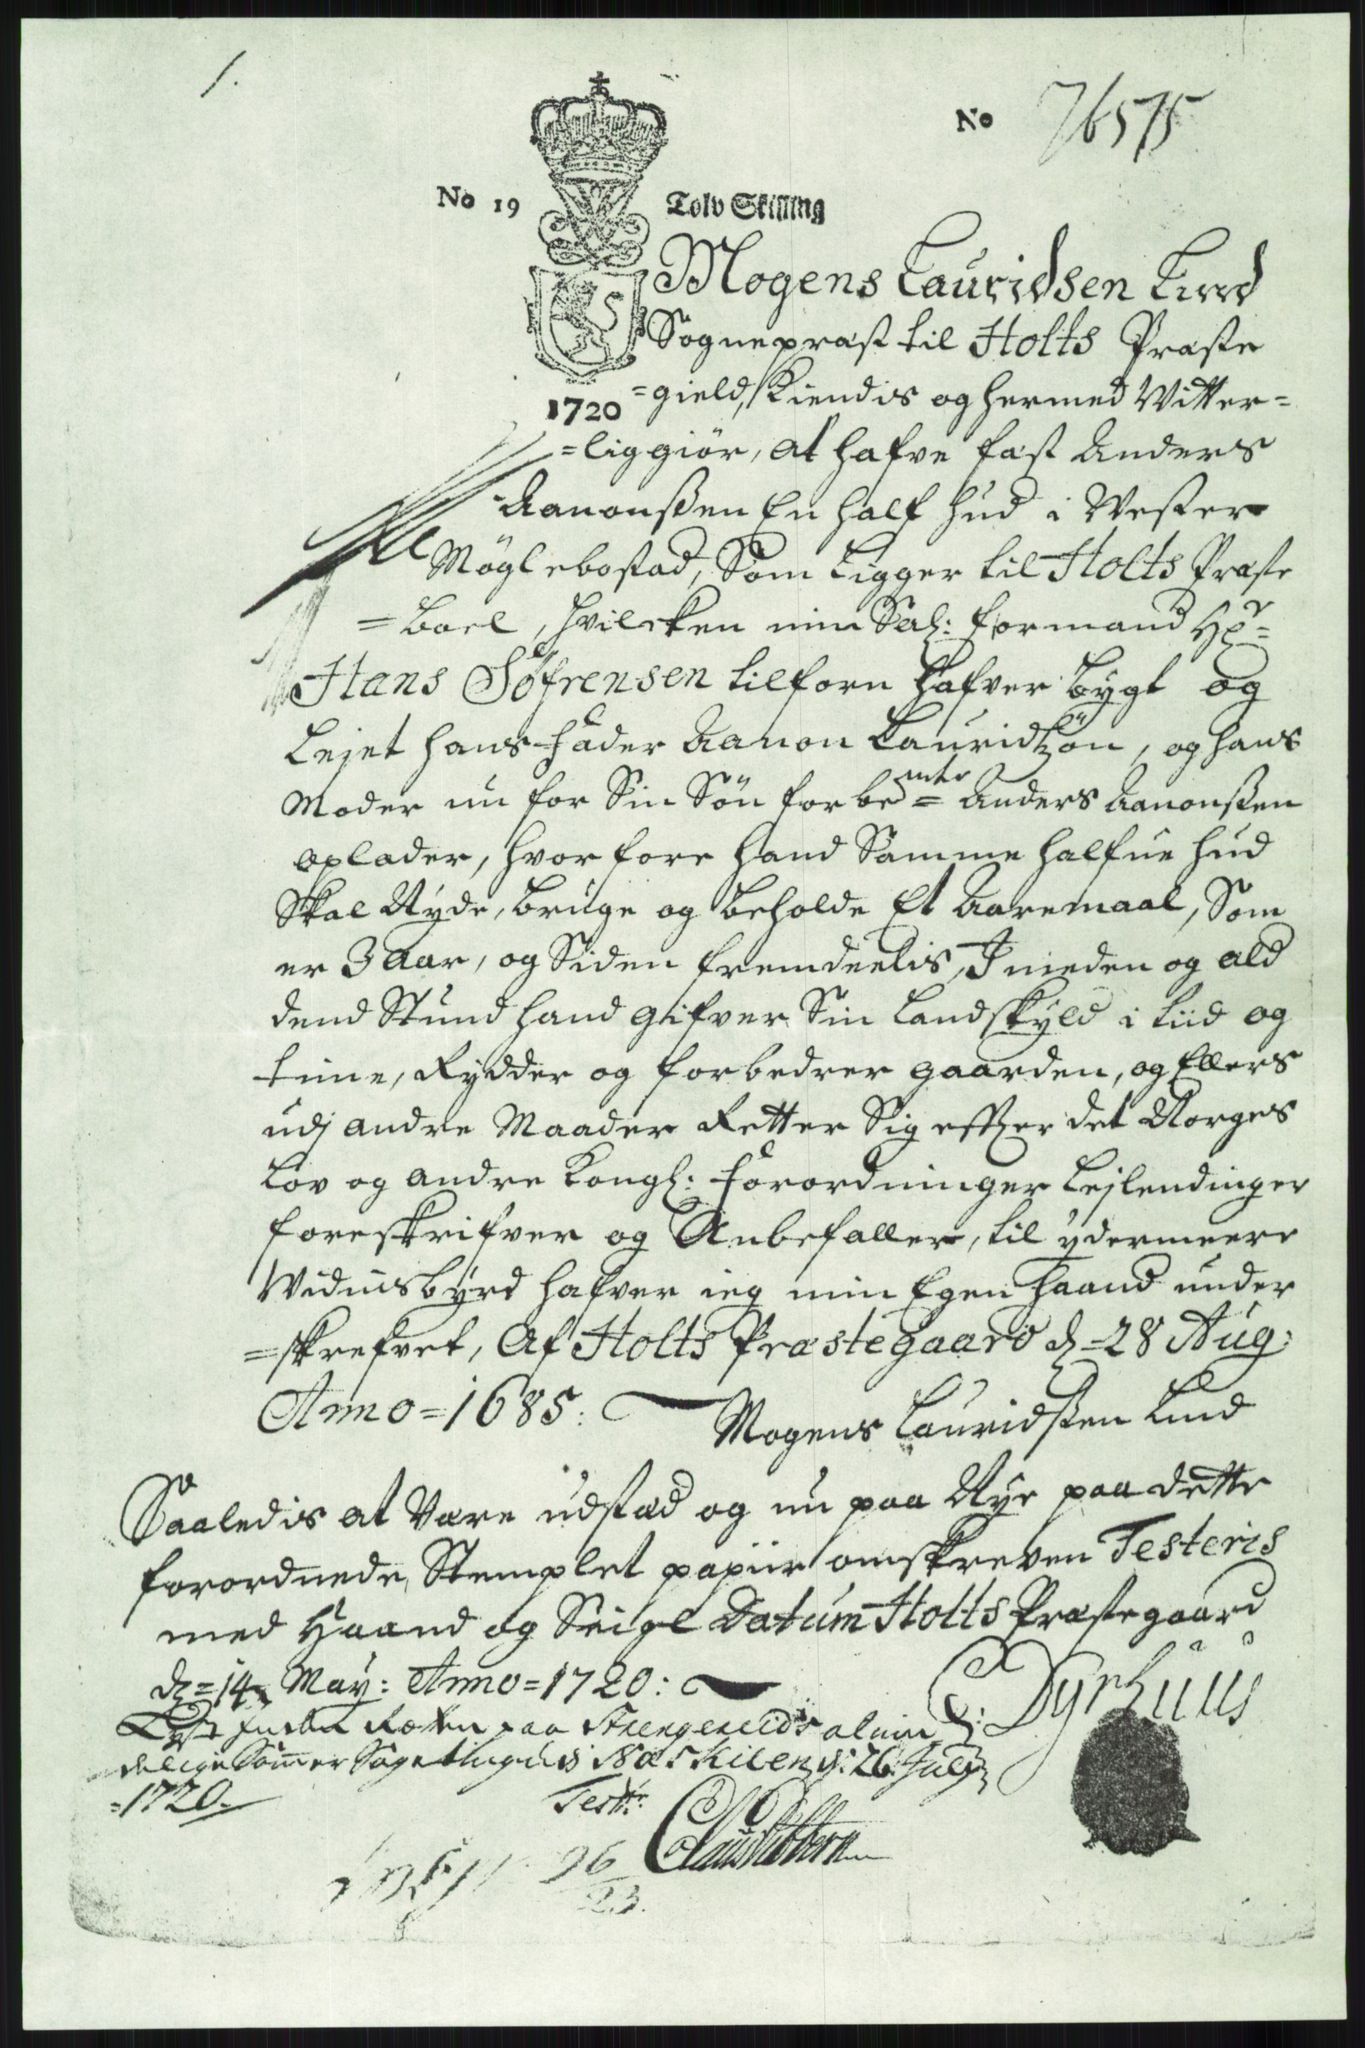 1.
No 76575
No 19 Tolv Skilling
Mogens Lauridsen Lind
Sognepræst til Holts Præste
1720 =gield, Kiendis og hermed Witter=
=lig giör, at hafve fæst Anders
Aanonßen En half hud i Wester
Möglebostad, Som Ligger til Holts Præste
=boel, hvilcken min Sal: formand Hr=
Hans Söfrensen tilforn hafver bygt og
Lejet hans fader Aanon Lauridtzön, og hans
Moder nu for Sin Sön forbemte= Anders Aanonßen
oplader, hvorfore hand Samme halfue hud
Skal Nyde, bruge og beholde Et Aaremaal, Som
er 3 Aar, og Siden fremdeelis, I meden og ald
dend Stund hand gifver Sin Landskyld i tiid og
time, Rydder og forbedrer gaarden, og Ellers
udj andre Maader Retter Sig efter det Norges
Lov og andre Kongl: forordninger Lejlendinger
foreskrifver og Anbefaller, til ydermeere
Widnisbyrd hafver ieg min Egen haand under
=skrefvet, Af Holts Præstegaard d= 28 Aug:
Anno= 1685: Mogens Lauridßen Lind
Saaledis at Være udstæd og nu paa Nye paa dette
forordnede Stemplet papiir omskreven Testeris
med Haand og Seigl Datum Holts Præstegaard
d= 14 May: Anno= 1720:
C: Dyrhuus
Lyst inden Retten paa Strengereids almin
delige Sommer Sage ting udi Næskilen d: 26 July
=1720. Testr:
Claus
26
23.